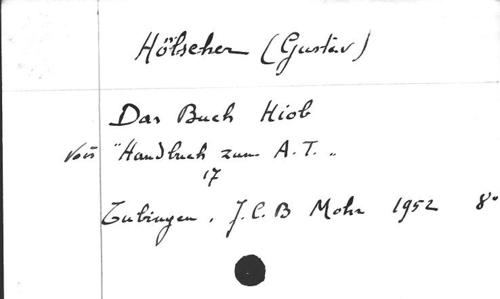 Hölscher (Gustav)
Das Buch Hiob
Voir "Handbuch zum A.T."
17
Tubingen, J.C.B Mohr 1952 8°